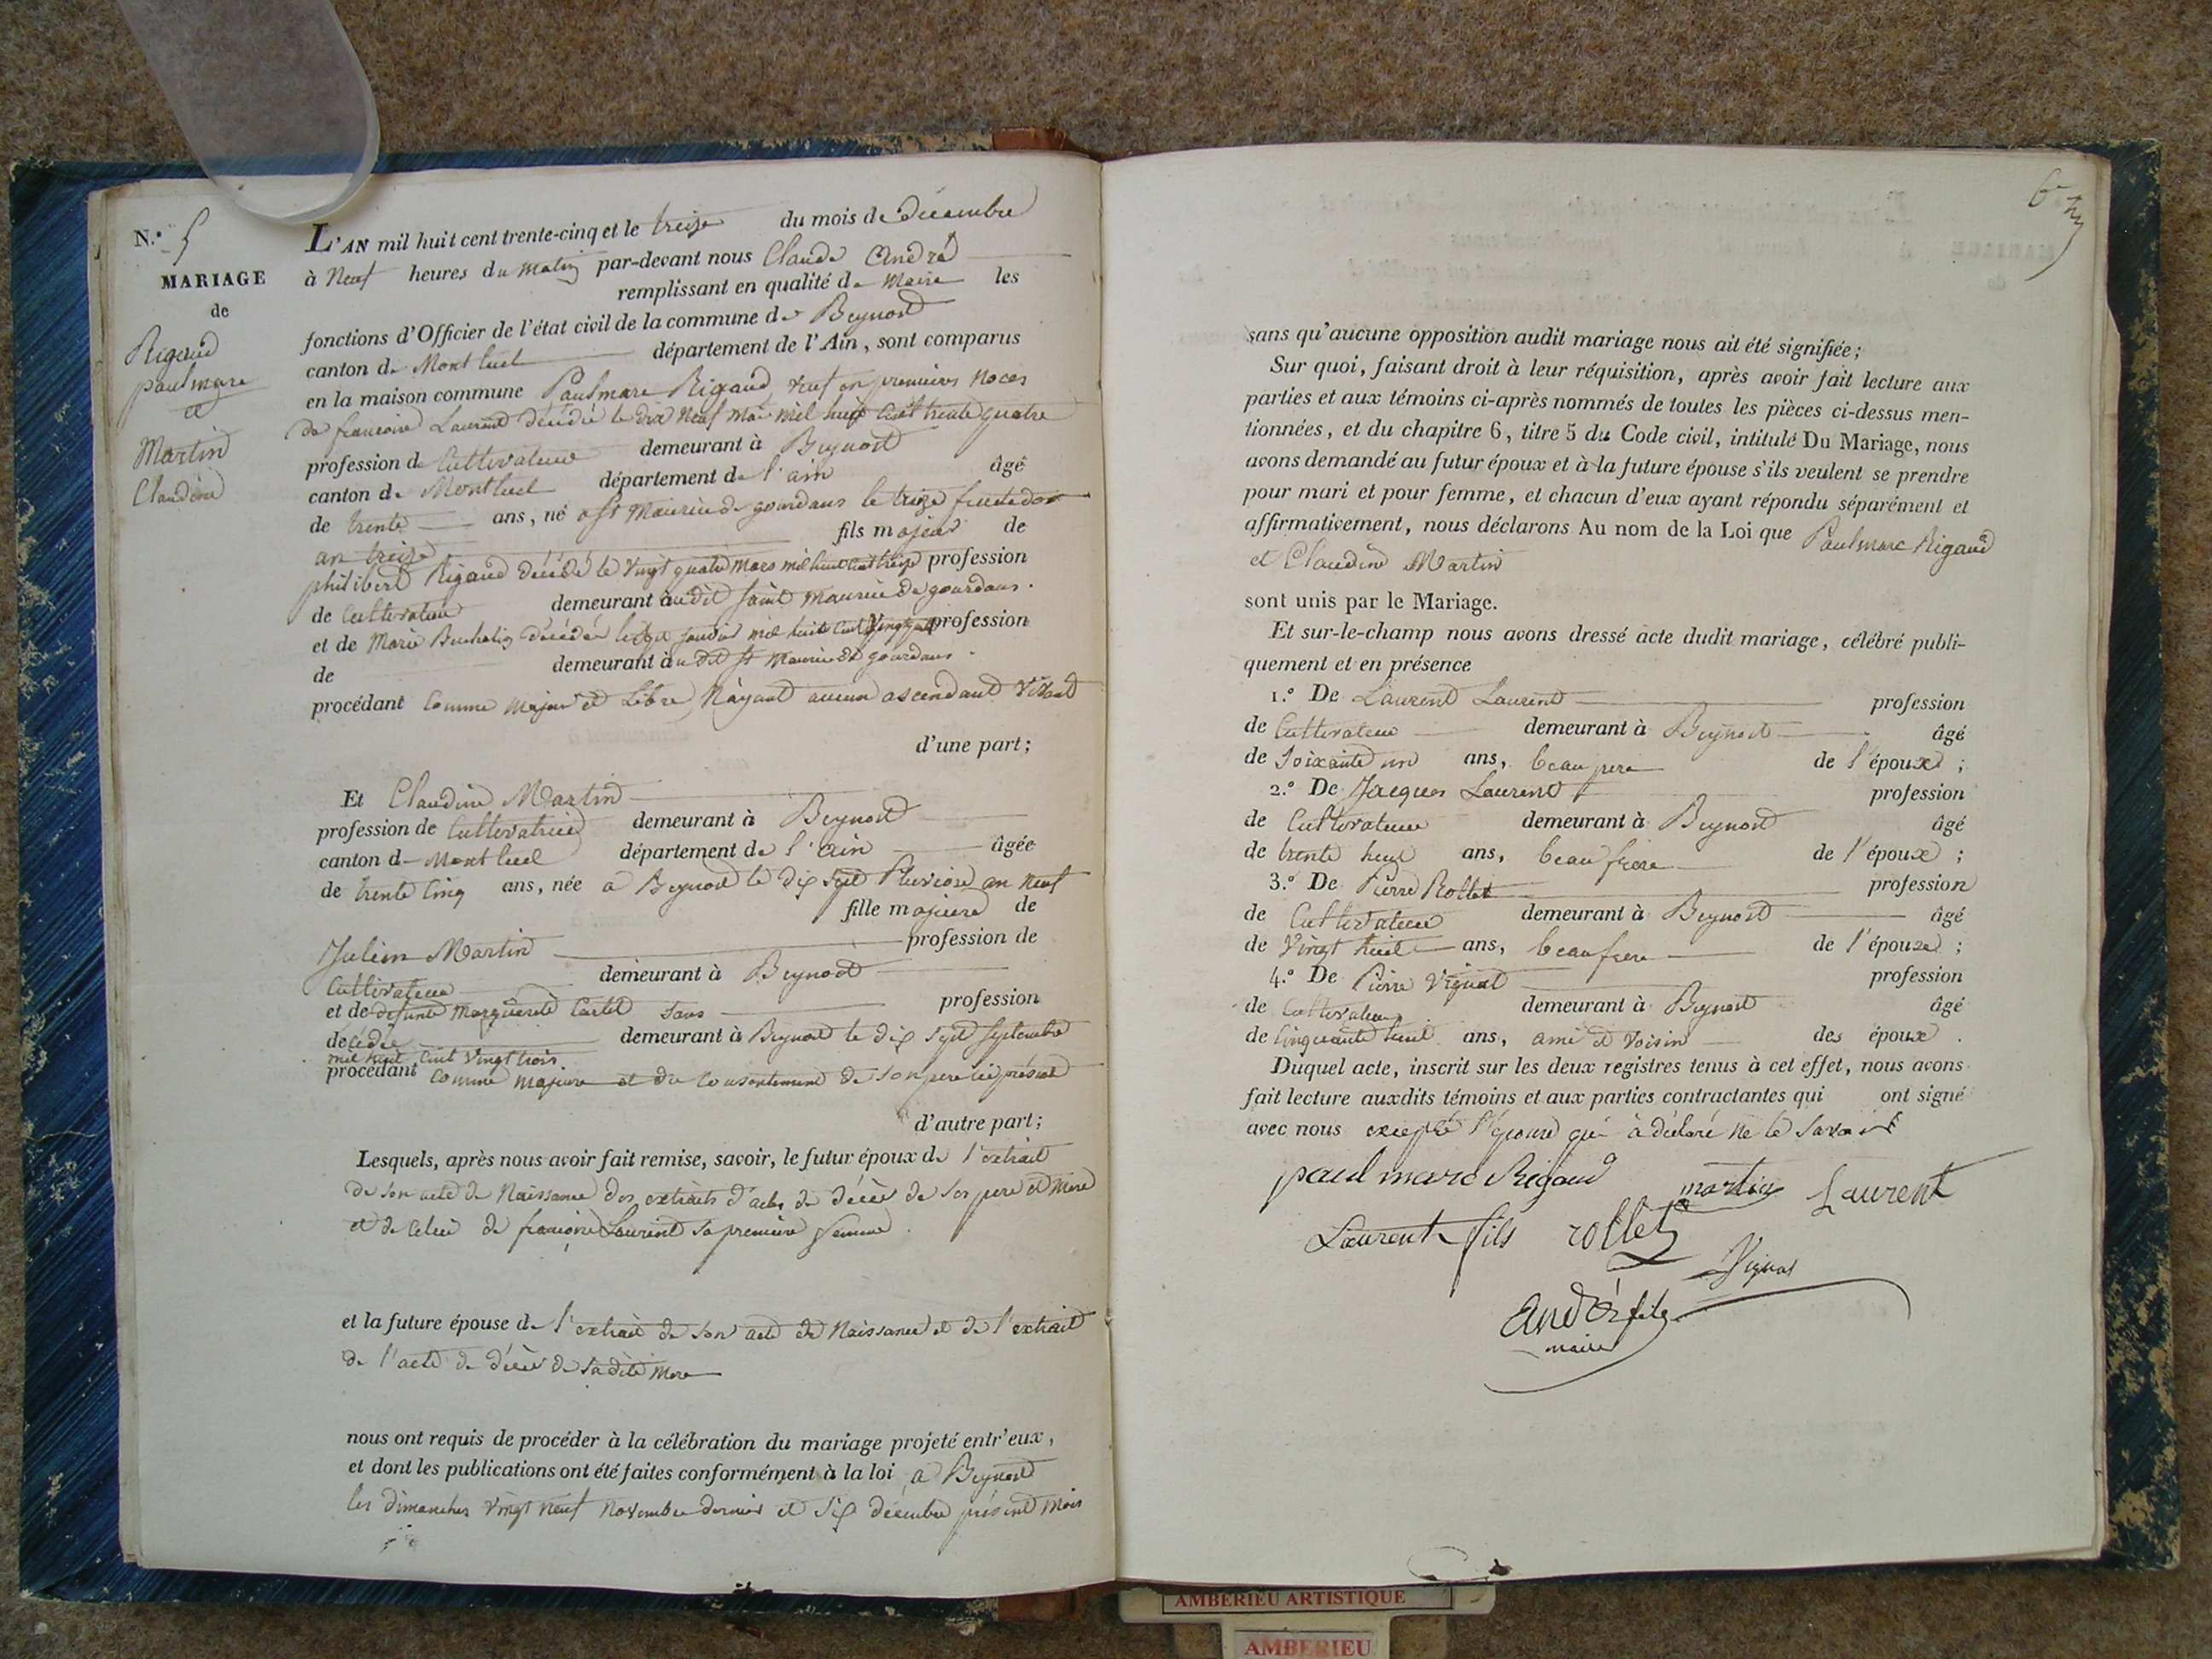 N.º 5
MARIAGE
de
Rigaud
paul marc
et
Martin
Claudine
L'AN mil huit cent trente-cinq et le treize du mois de Décembre
à Neuf heures du matin par-devant nous Claude André
remplissant en qualité de Maire les
fonctions d'Officier de l'état civil de la commune de Beynost
canton de Montluel département de l'Ain, sont comparus
en la maison commune Paul marc Rigaud veuf en premieres Noces
de francoise Laurent décédée le dix Neuf mai mil huit cent trente quatre
profession de Cultivateur demeurant à Beynost
canton de Montluel département de l'ain âgé
de trente ans, né a St Maurice de gourdans le treize fructidor
an treize fils majeur de
philibert Rigaud décédé le vingt quatre mars mil huit cent treize profession
de Cultivateur demeurant audit saint maurice de gourdans.
et de Marie décédée le janvier mil huit cent vingt profession
de demeurant au dit St maurice de gourdans.
procédant Comme majeur et Libre Nayant aucun ascendant vivant
d'une part;
Et Claudine Martin
profession de Cultivatrice demeurant à Beynost
canton de Montluel département de l'ain âgée
de trente cinq ans, née a Beynost le dix sept Pluviose an Neuf
fille majeure de
Julien Martin profession de
Cultivateur demeurant à Beynost
et de defunte Marguerite Cartel sans profession
décédée demeurant à Beynost le dix sept septembre
mil huit cent vingt trois
procédant comme majeure et du consentement de son pere ici présent
d'autre part;
Lesquels, après nous avoir fait remise, savoir, le futur époux de l'extrait
de son acte de Naissance des extraits d'actes de décès de ses pere et mere
et de celui de francoise Laurent sa premiere femme.
et la future épouse de l'extrait de son acte de Naissance et de l'extrait
de l'acte de décès de sadite mere
nous ont requis de procéder à la célébration du mariage projeté entr'eux,
et dont les publications ont été faites conformément à la loi, a Beynost
les dimanches vingt neuf Novembre dernier et six décembre présent mois
sans qu'aucune opposition audit mariage nous ait été signifiée;
Sur quoi, faisant droit à leur réquisition, après avoir fait lecture aux
parties et aux témoins ci-après nommés de toutes les pièces ci-dessus men-
tionnées, et du chapitre 6, titre 5 du Code civil, intitulé Du Mariage, nous
avons demandé au futur époux et à la future épouse s'ils veulent se prendre
pour mari et pour femme, et chacun d'eux ayant répondu séparément et
affirmativement, nous déclarons Au nom de la Loi que Paul marc Rigaud
et Claudine Martin
sont unis par le Mariage.
Et sur-le-champ nous avons dressé acte dudit mariage, célébré publi-
quement et en présence
1.º De Laurent Laurent profession
de Cultivateur demeurant à Beynost âgé
de soixante un ans, beau pere de l'époux;
2.º De Jacques Laurent profession
de Cultivateur demeurant à Beynost âgé
de trente huit ans, beau frere de l'époux;
3.º De Pierre Rollet profession
de Cultivateur demeurant à Beynost âgé
de vingt huit ans, beau frere de l'épouse;
4.º De Pierre Vignat profession
de Cultivateur demeurant à Beynost âgé
de Cinquante huit ans, ami et voisin des époux.
Duquel acte, inscrit sur les deux registres tenus à cet effet, nous avons
fait lecture auxdits témoins et aux parties contractantes qui ont signé
avec nous excepté l'épouse qui à déclaré ne le savoir
paul marc Rigaud martin Laurent
Laurent fils rollet
Vignat
André fils
maire
AMBERIEU ARTISTIQUE
AMBERIEU